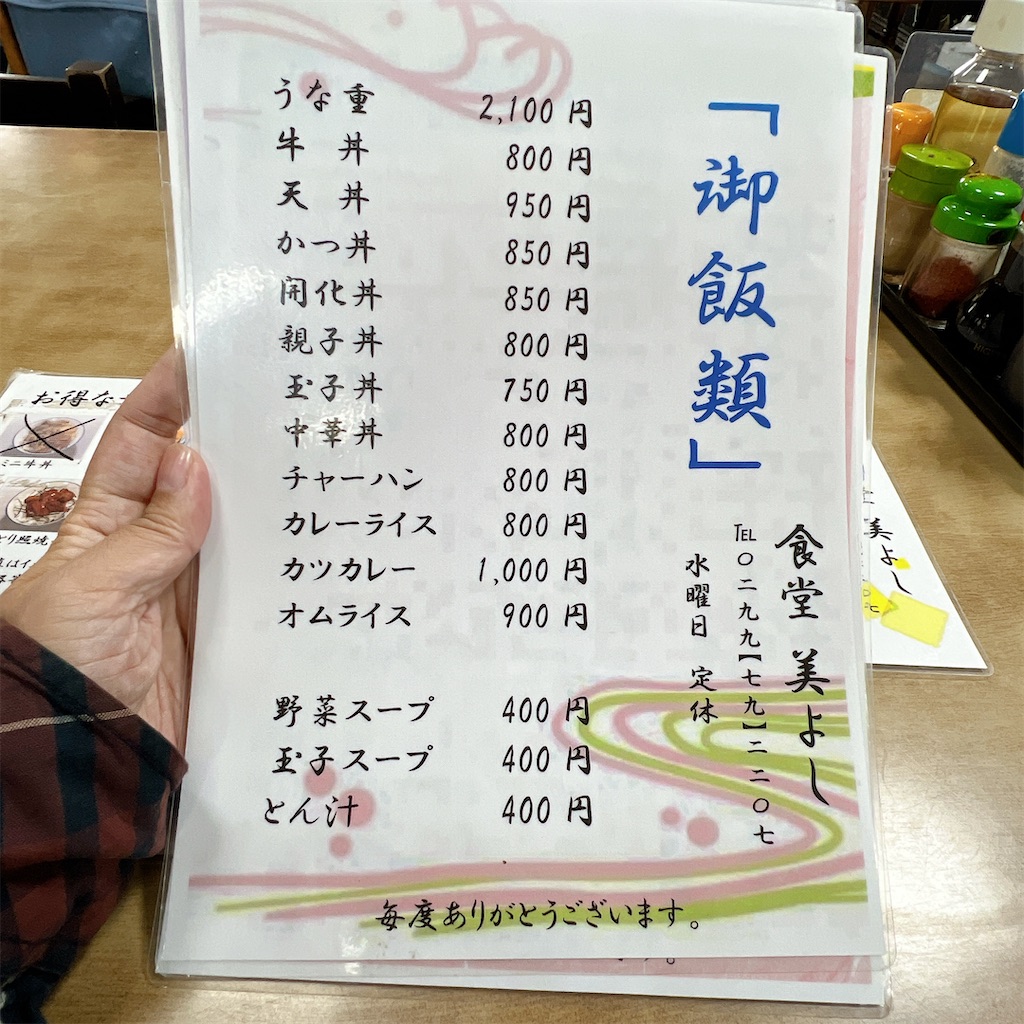 「御飯類」
食堂 美よし
TEL〇二九九【七九】二二〇七
水曜日 定休
うな重 2,100円
牛丼 800円
天丼 950円
かつ丼 850円
開化丼 850円
親子丼 800円
玉子丼 750円
中華丼 800円
チャーハン 800円
カレーライス 800円
カツカレー 1,000円
オムライス 900円
野菜スープ 400円
玉子スープ 400円
とん汁 400円
毎度ありがとうございます。
お得な
ミニ牛丼
り照焼
美よし